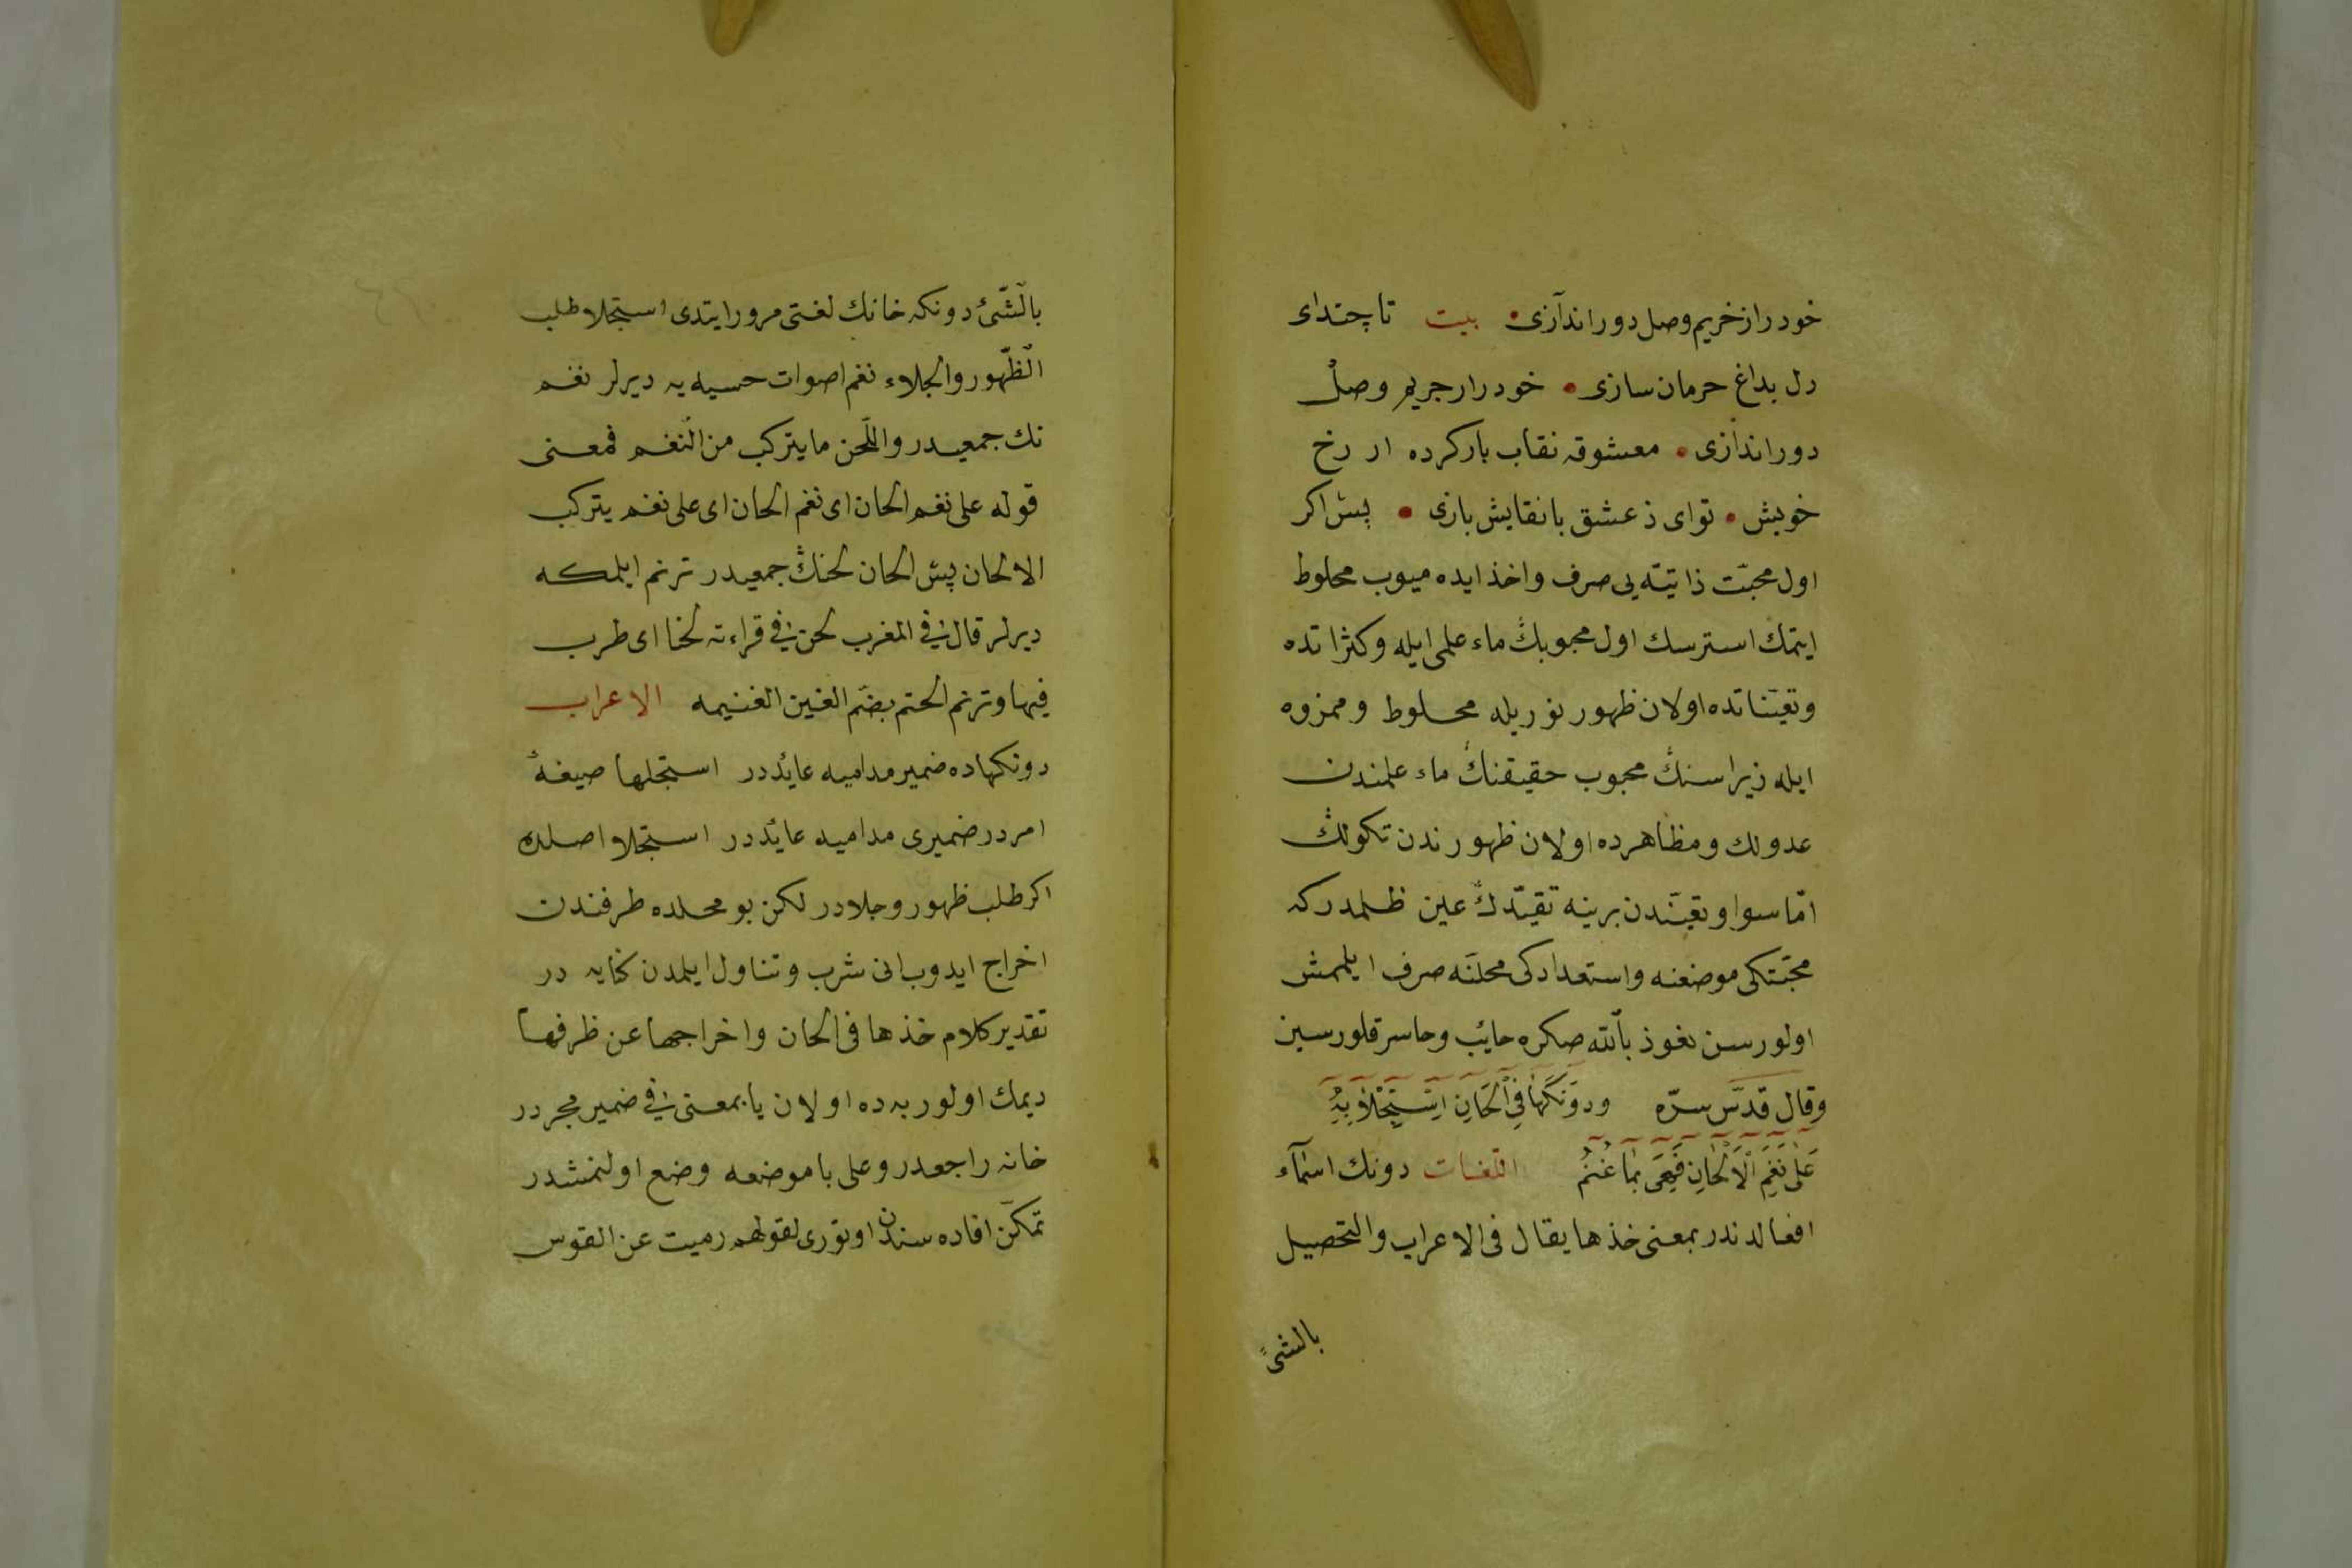 خود را از خريم وصل دور اندآزى • بيت تا چندای
دل بداغ حرمان سازى • خود را ار جريم وصلْ
دور اندازى • معشوقه نقاب بار كرده ار رخ
خويش • تواى ذ عشق با نقايش بازى • پس اكر
اول محبّت ذاتيّه يى صرف واخذ ايده ميوب محلوط
ايتمك استرسك اول محبوبڭ ماء علمى ايله وكثراتده
وتعيّناتده اولان ظهور نوريله محلوط وممزوه
ايله زيرا سنڭ محبوب حقيقنڭ ماء علمندن
عدولك ومظاهرده اولان ظهورندن تكولڭ
امّا سوا وتعيّندن برينه تقيّدڭ عين ظلمدركه
محبّتكى موضعنه واستعدادكى محلنّه صرف ايلمش
اولورسن نعوذ بالله صكره حائب وحاسر قلورسين
وقال قدّس سرّه ودونكَها فى الْحَانِ اِسْتِجْلاَ بِهُ
عَلٰى نَغَمِ الْاَلْحَانِ فَهِىَ بِهَا غُنْمُ اللّغات دونك اسمآء
افعالدندر بمعنى خذها يقال فى الاعراب والتحصيل
بالشئ
بالشّئ دونكه خانك لغتى مرور ايتدى استجلا طلب
الظّهور والجلاء نغم اصوات حسيه يه ديرلر نغم
نك جمعيدر واللّحن ما يتركب من النّغم فمعنى
قوله على نغم الحان اى نغم الحان اى على نغم يتركب
الالحان پس الحان لحنڭ جمعيدر ترنم ايلمكه
ديرلر قال فى المغرب لحن فى قراءته لحنا اى طرب
فيها وترنم الحتم بضّم الغين الغنيمه الاعراب
دونكهاده ضمير مداميه عائددر استجلها صيغهٔ
امردر ضميرى مداميه عائددر استجلا اصلده
اكر طلب ظهور وجلادر لكن بو محلده طرفندن
اخراج ايدوب انى شرب وتناول ايلمدن كنايه در
تقدير كلام خذها فى الحان واخراجها عن ظرفها
ديمك اولور به ده اولان يا بمعنى فى ضمير مجردر
خانه راجعدر وعلى با موضعه وضع اولنمشدر
تمكّن افاده سندن اوتورى لقولهم رميت عن القوس